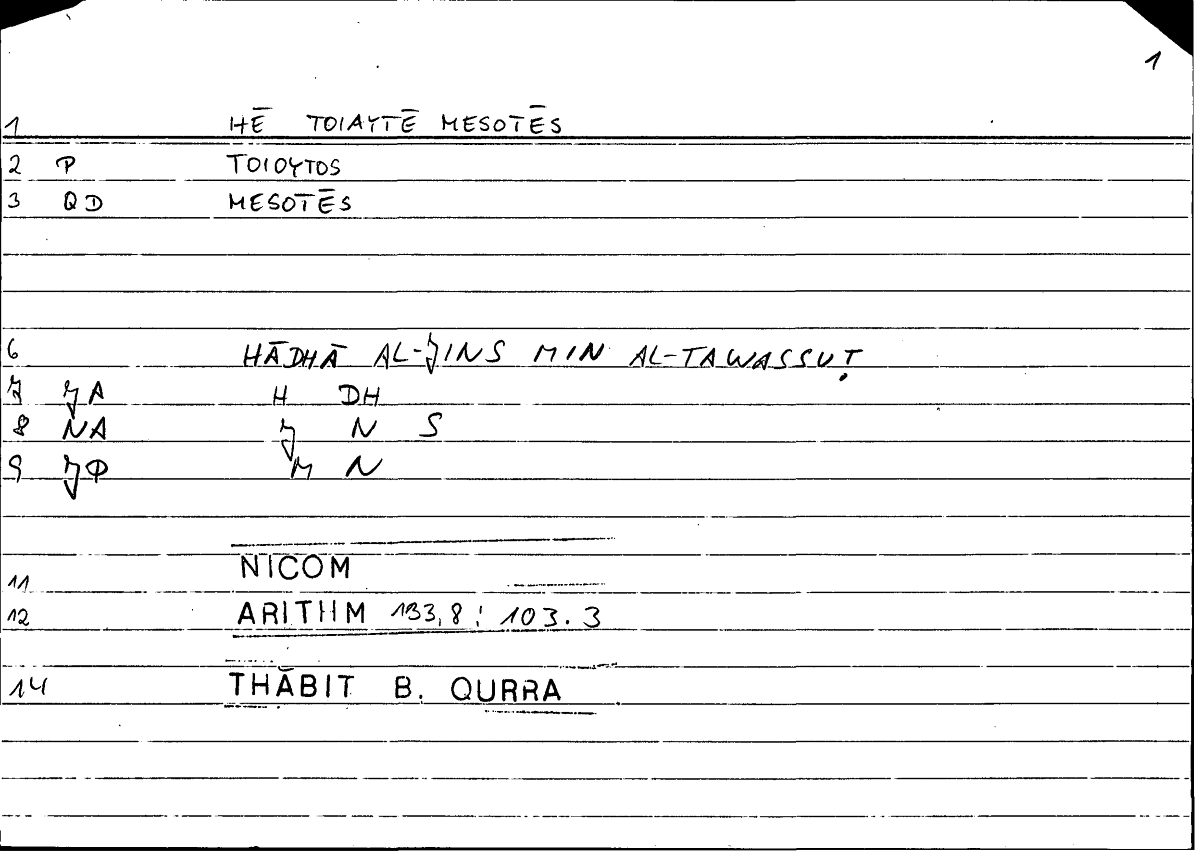 1
1 HĒ TOIAYTĒ MESOTĒS
2 P TOIOYTOS
3 QD MESOTĒS
6 HĀDHĀ AL-JINS MIN AL-TAWASSUṬ
7 JA H DH
8 NA J N S
9 JP M N
11 NICOM
12 ARITHM 133,8 : 103.3
14 THĀBIT B. QURRA